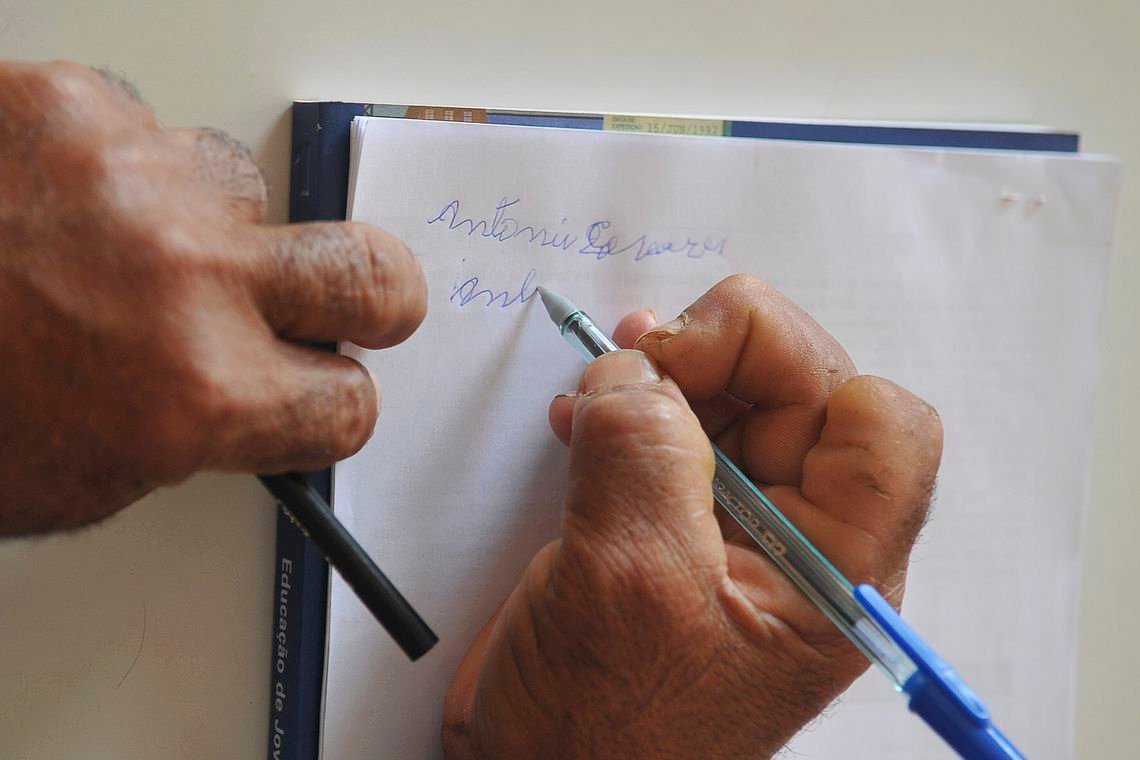 DATA DE
EXPEDIÇÃO 15/JUN/1992
Antonio
Ant
Educação de Jov
FACTOR